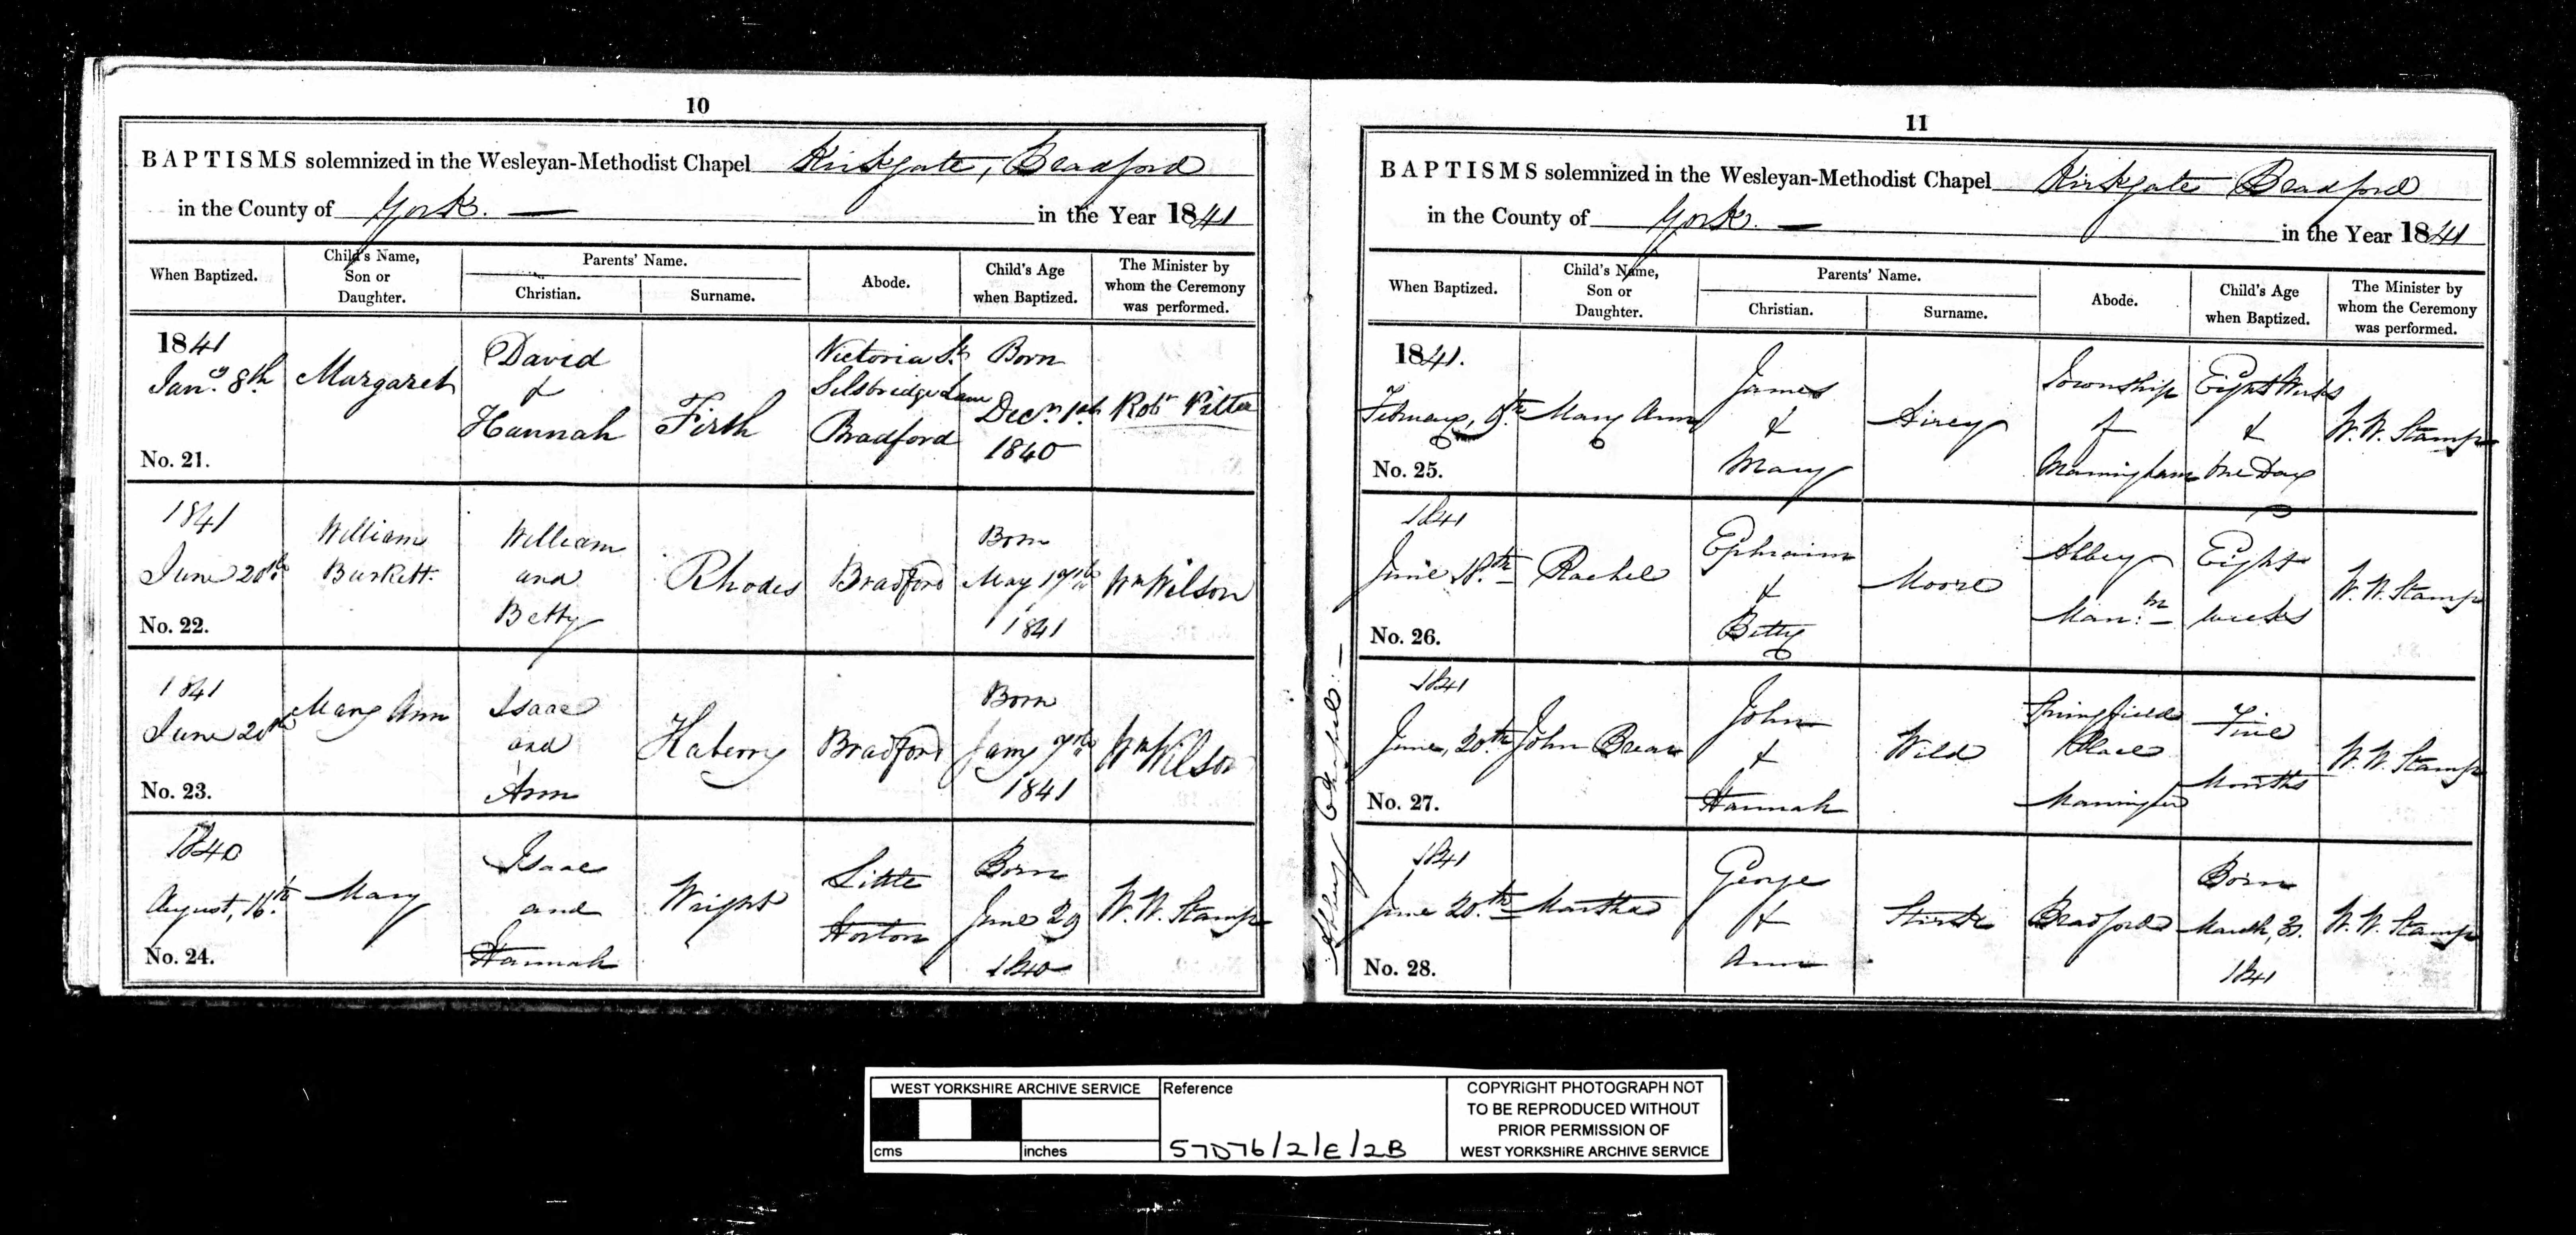 10
BAPTISMS solemnized in the Wesleyan-Methodist Chapel Kirkgate, Bradford
in the County of York. — in the Year 1841
When Baptized.
Child's Name,
Son or
Daughter.
Parents' Name.
Christian.
Surname.
Abode.
Child's Age
when Baptized.
The Minister by
whom the Ceremony
was performed.
1841
Jany. 8th
No. 21.
Margaret
David
&
Hannah
Firth
Victoria St.
Silsbridge Lane
Bradford
Born
Decr. 1st
1840
Robt
1841
June 20th
No. 22.
William
Burkett.
William
and
Betty
Rhodes
Bradford
Born
May 17th
1841
Wm Wilson
1841
June 20th
No. 23.
Mary Ann
Isaac
and
Ann
Haberry
Bradford
Born
Jany 7th
1841
Wm Wilson
1840
August, 16th.
No. 24.
Mary
Isaac
and
Hannah
Wright
Little
Horton
Born
June 29
1840
W. W. Stamp
11
BAPTISMS solemnized in the Wesleyan-Methodist Chapel Kirkgate Bradford
in the County of York. — in the Year 1841
When Baptized.
Child's Name,
Son or
Daughter.
Parents' Name.
Christian.
Surname.
Abode.
Child's Age
when Baptized.
The Minister by
whom the Ceremony
was performed.
1841.
February, 9th.
No. 25.
Mary Ann
James
&
Mary
Airey
Township
of
Manningham
Eight Weeks
&
One Day
W. W. Stamp
1841
June 18th.
No. 26.
Rachel
Ephraim
&
Betty
Moore
Abbey
Man:m
Eight
weeks
W. W. Stamp
1841
June, 20th.
No. 27.
John
John
&
Hannah
Wild
Springfield
Place
Five
Months
W. W. Stamp
1841
June 20th.
No. 28.
Martha
George
&
Ann
Bradford
Born
March, 31.
1841
W. W. Stamp
Chapel. —
WEST YORKSHIRE ARCHIVE SERVICE
cms
inches
Reference
57D76/2/E/2B
COPYRIGHT PHOTOGRAPH NOT
TO BE REPRODUCED WITHOUT
PRIOR PERMISSION OF
WEST YORKSHIRE ARCHIVE SERVICE